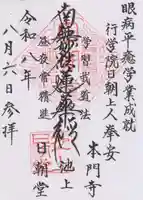 眼病平癒学業成就
行学院日朝上人奉安
本門寺
池上
日朝堂
南無妙法蓮華経
学習我道法
昼夜常精進
令和八年
八月六日参拝